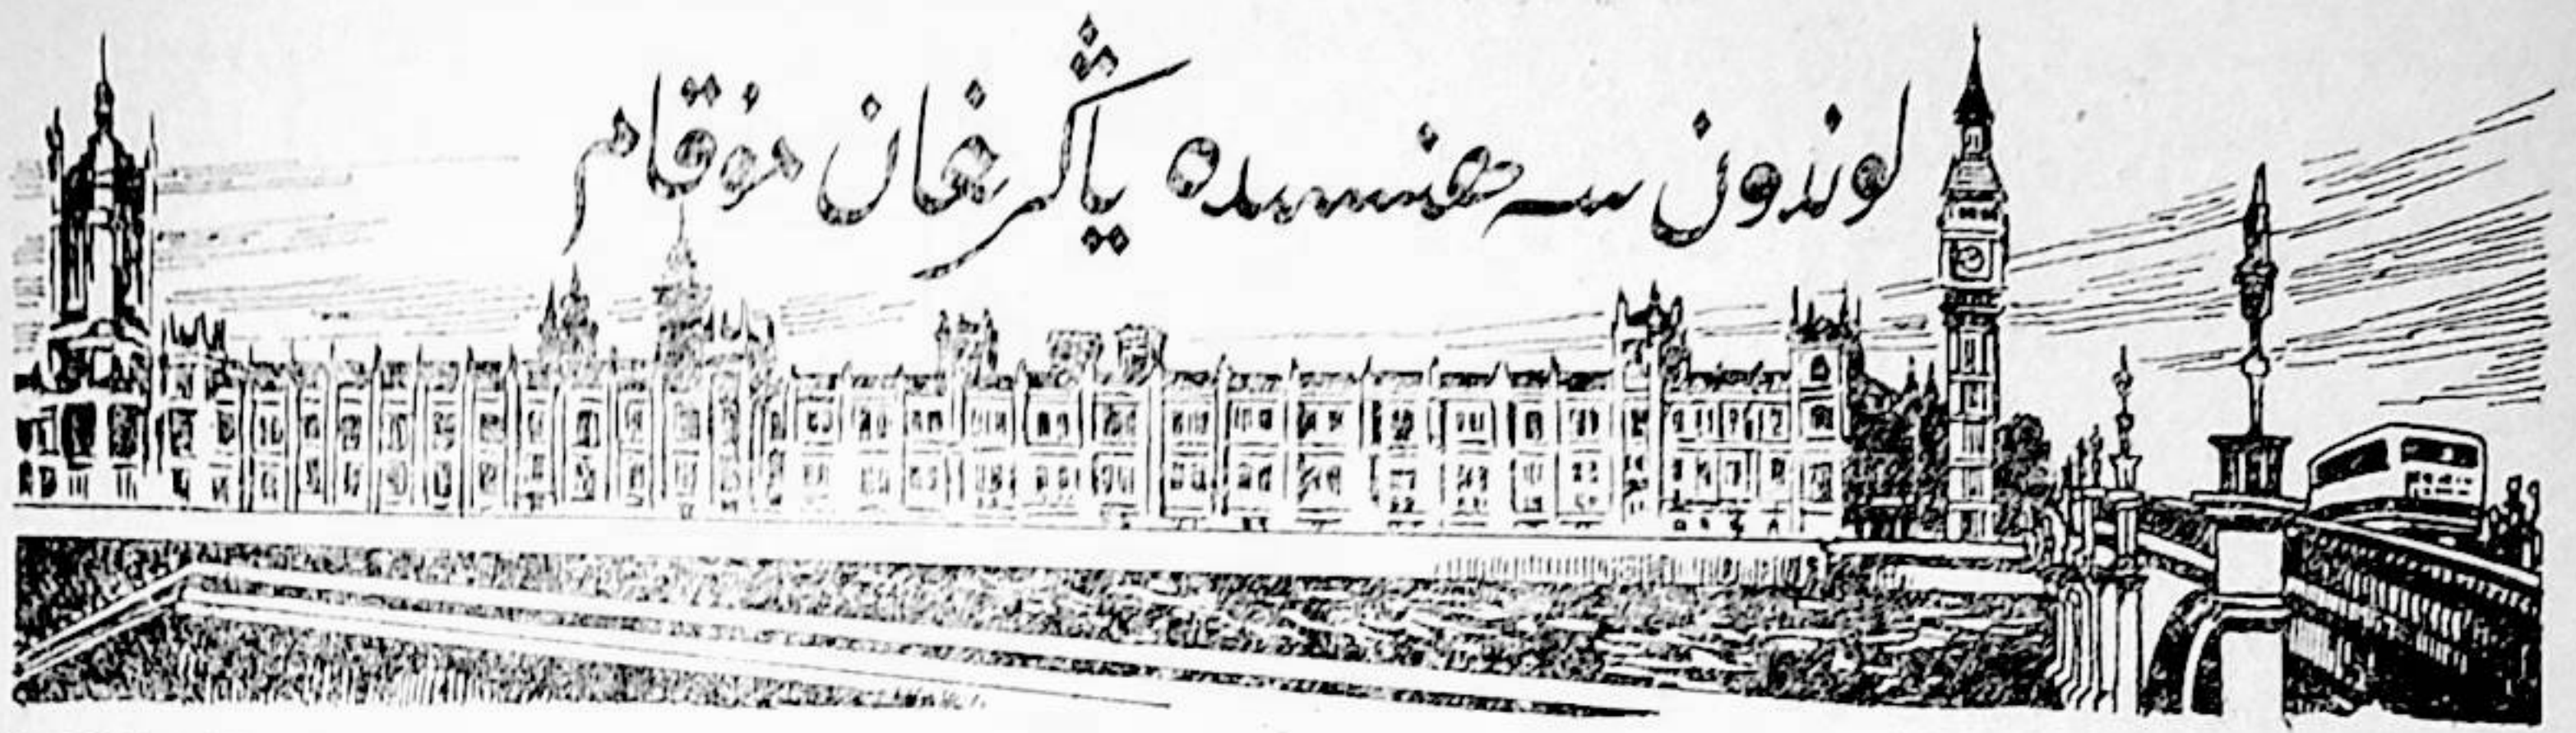 لوندون سەھنىسىدە ياڭرىغان مۇقام